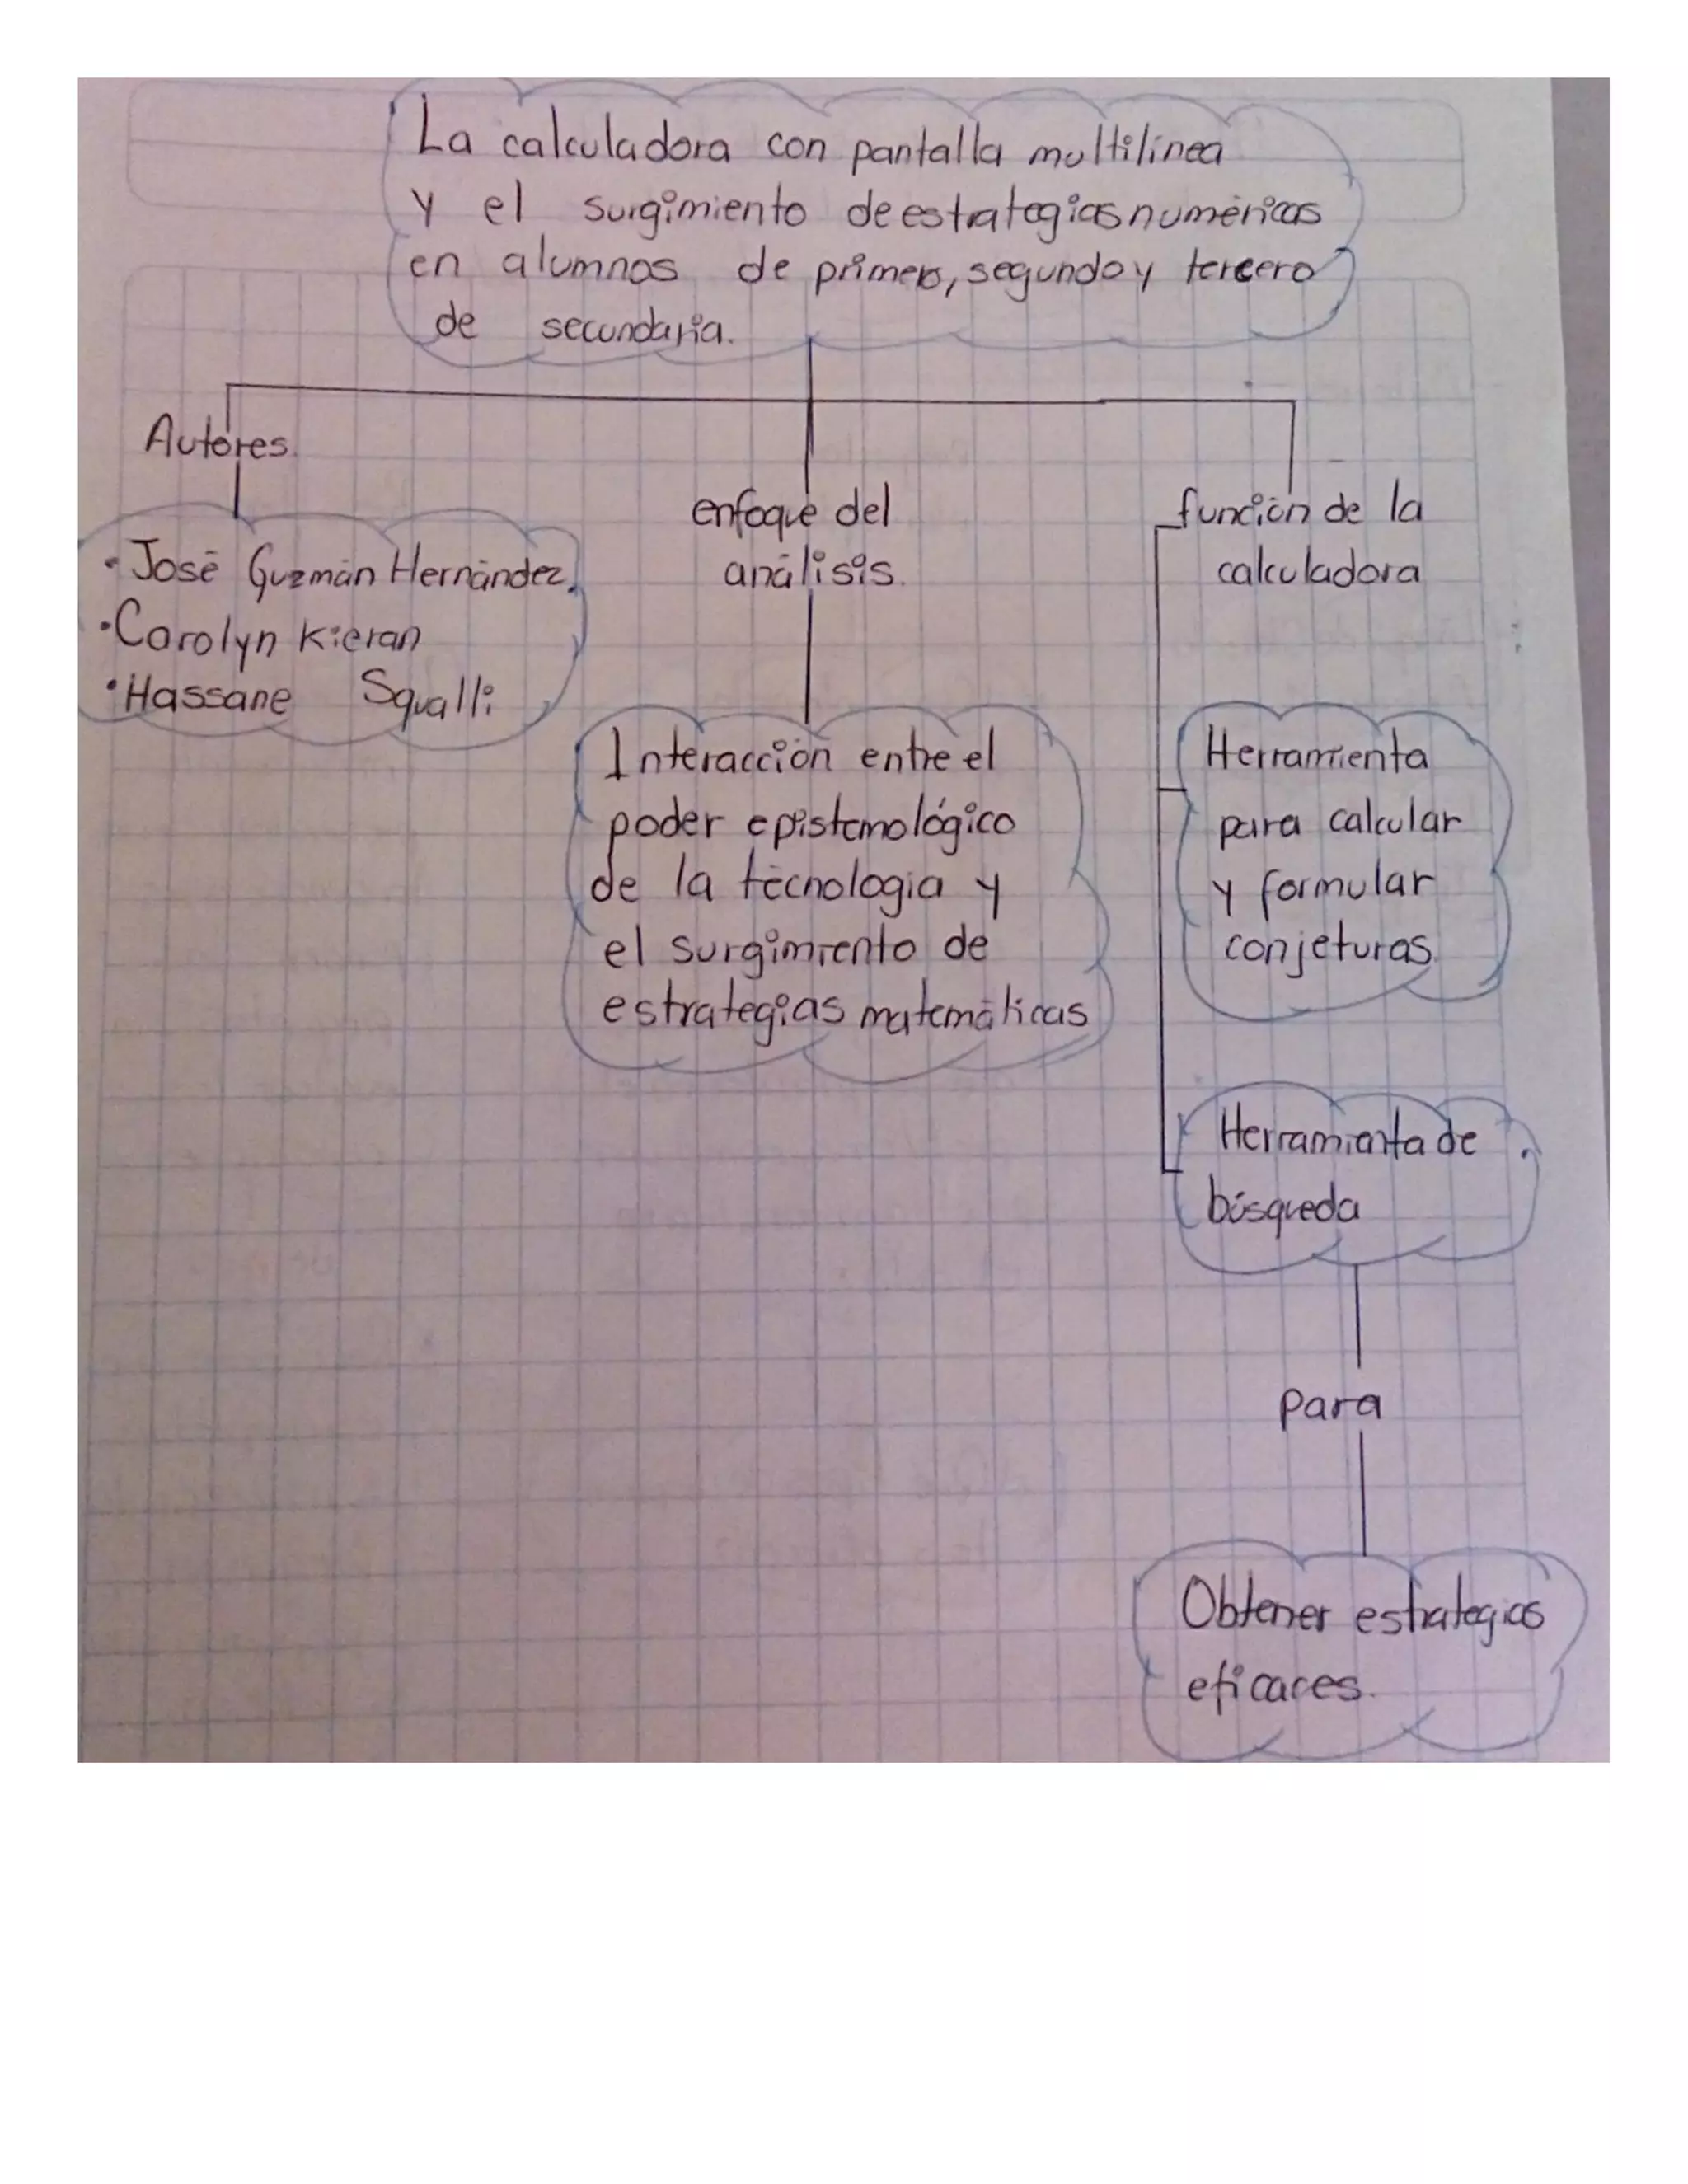 La calculadora con pantalla multilínea
y el surgimiento de estrategias numéricas
en alumnos de primero, segundo y tercero
de secundaria.
Autores.
• José Guzmán Hernández.
• Carolyn Kieran
• Hassane Squalli
enfoque del
análisis.
Interacción entre el
poder epistemológico
de la tecnología y
el surgimiento de
estrategias matemáticas
función de la
calculadora
Herramienta
para calcular
y formular
conjeturas.
Herramienta de
búsqueda
para
Obtener estrategias
eficaces.